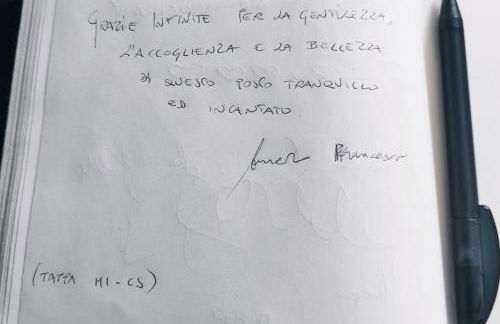 GRAZIE INFINITE PER LA GENTILEZZA,
L'ACCOGLIENZA E LA BELLEZZA
DI QUESTO POSTO TRANQUILLO
ED INCANTATO.
Francesco
(TAPPA MI-CS)